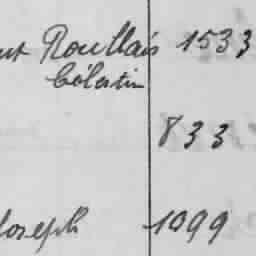 ut Roullais 1533
Célestin
833
Joseph 1099